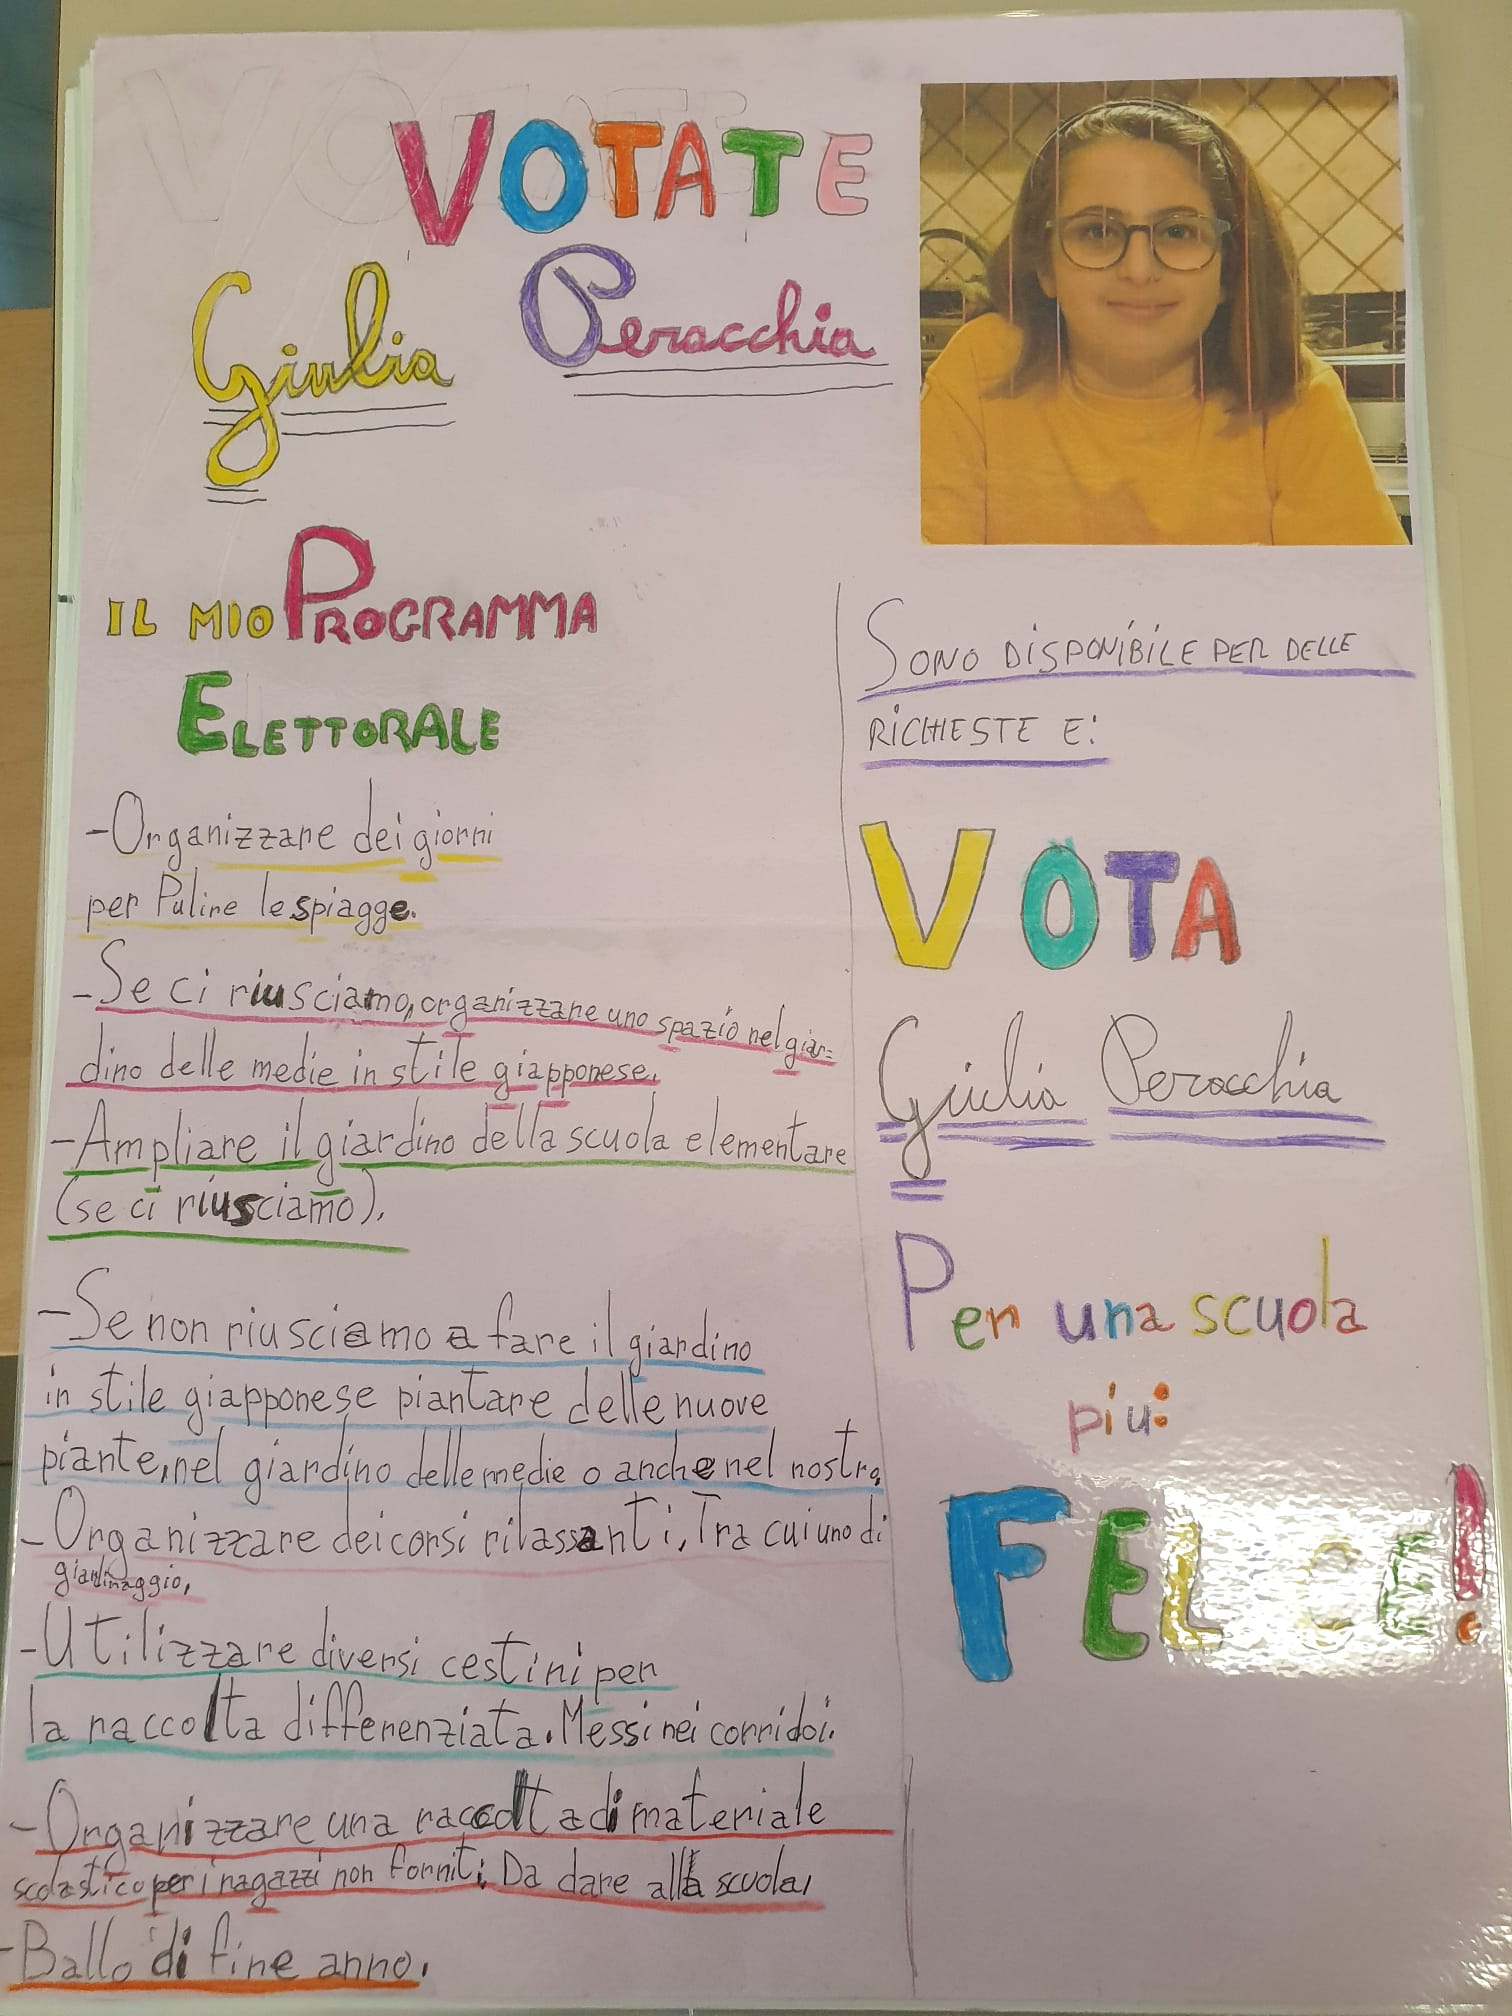 VOTATE
Giulia Peracchia
IL MIO PROGRAMMA
ELETTORALE
-Organizzare dei giorni
per Pulire le spiagge.
-Se ci riusciamo, organizzare uno spazio nel giar=
dino delle medie in stile giapponese.
-Ampliare il giardino della scuola elementare
(se ci riusciamo).
-Se non riusciamo a fare il giardino
in stile giapponese piantare delle nuove
piante, nel giardino delle medie o anche nel nostro.
-Organizzare dei corsi rilassanti, Tra cui uno di
giardinaggio,
-Utilizzare diversi cestini per
la raccolta differenziata. Messi nei corridoi.
-Organizzare una raccolta di materiale
scolastico per i ragazzi non forniti; Da dare alla scuola,
-Ballo di fine anno.
SONO DISPONIBILE PER DELLE
RICHIESTE E:
VOTA
Giulia Peracchia
Per una scuola
piu:
FELICE!